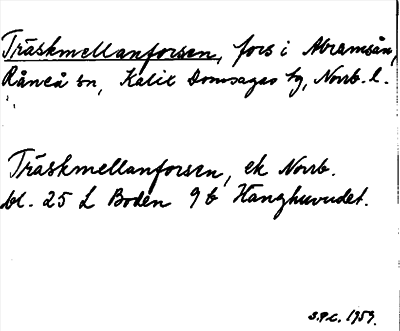 Träskmellanforsen, fors i Abramsån,
Råneå sn, Kalix Domsagas hg, Norrb. l.
Träskmellanforsen, ek Norrb.
bl. 25 L Boden 9 b Hanghuvudet.
S.P.L. 1959.